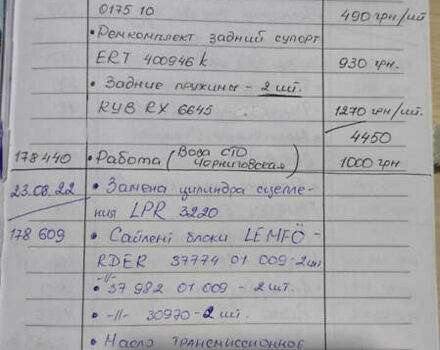 0175 10 490 грн/шт
• Ремкомплект задний супорт
ERT 400946 k 930 грн.
• Задние пружины - 2 шт.
KYB RX 6645 1270 грн/шт.
4450
178 440 • Работа (Вова СТО Черниговская) 1000 грн
23.08.22 • Замена цилиндра сцепле-
ния LPR 3220
178 609 • Сайлент блоки LEMFÖ-
RDER 37774 01 009 - 2 шт
-//- 37 982 01 009 - 2 шт.
• -//- 30970 - 2 шт.
• Масло трансмиссионное